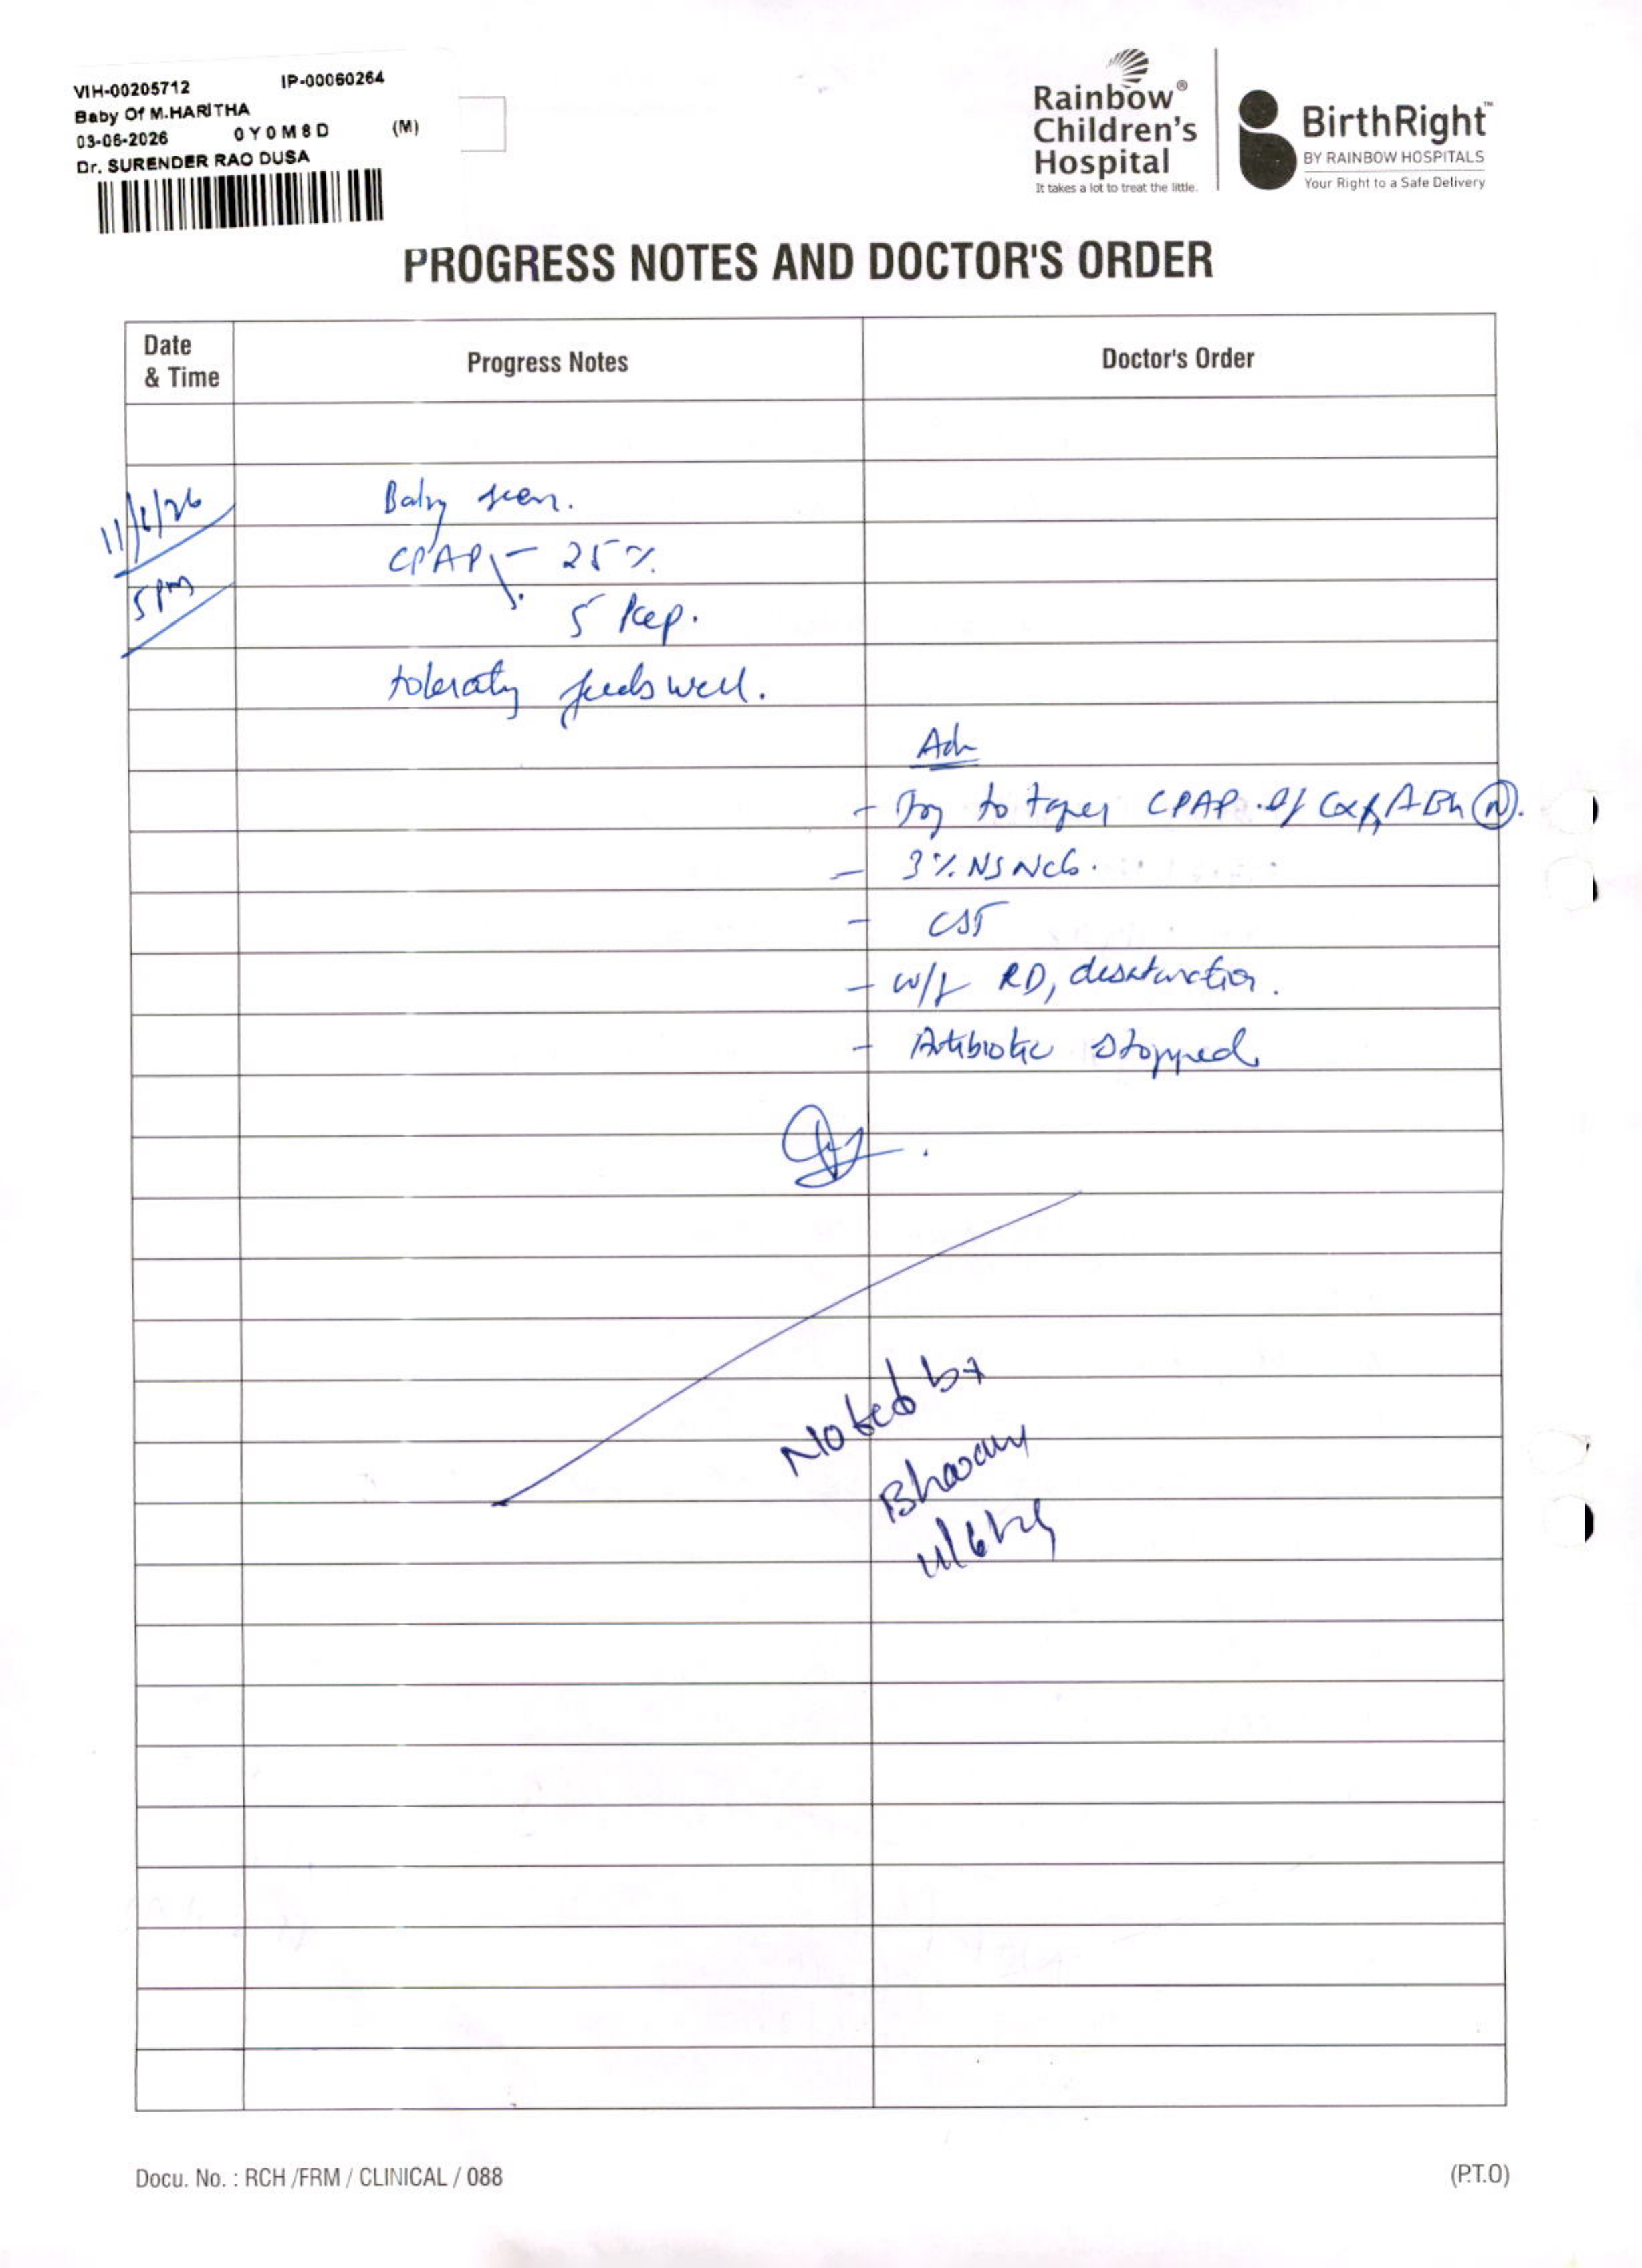 VIH-00205712 IP-00060264
Baby Of M.HARITHA
03-06-2026 0Y0M8D (M)
Dr. SURENDER RAO DUSA
Rainbow®
Children's
Hospital
It takes a lot to treat the little.
BirthRight™
BY RAINBOW HOSPITALS
Your Right to a Safe Delivery
PROGRESS NOTES AND DOCTOR'S ORDER
Date
& Time
Progress Notes
Doctor's Order
11/6/26
5 pm
Baby seen.
CPAP - 25%.
5 Peep.
tolerating feeds well.
Adv
- Try to taper CPAP if CXR, ABG (N).
- 3% NS Neb.
- CST
- w/f RD, desaturation.
- Antibiotic stopped
Noted by
11/6/26
Docu. No. : RCH /FRM / CLINICAL / 088
(P.T.O)